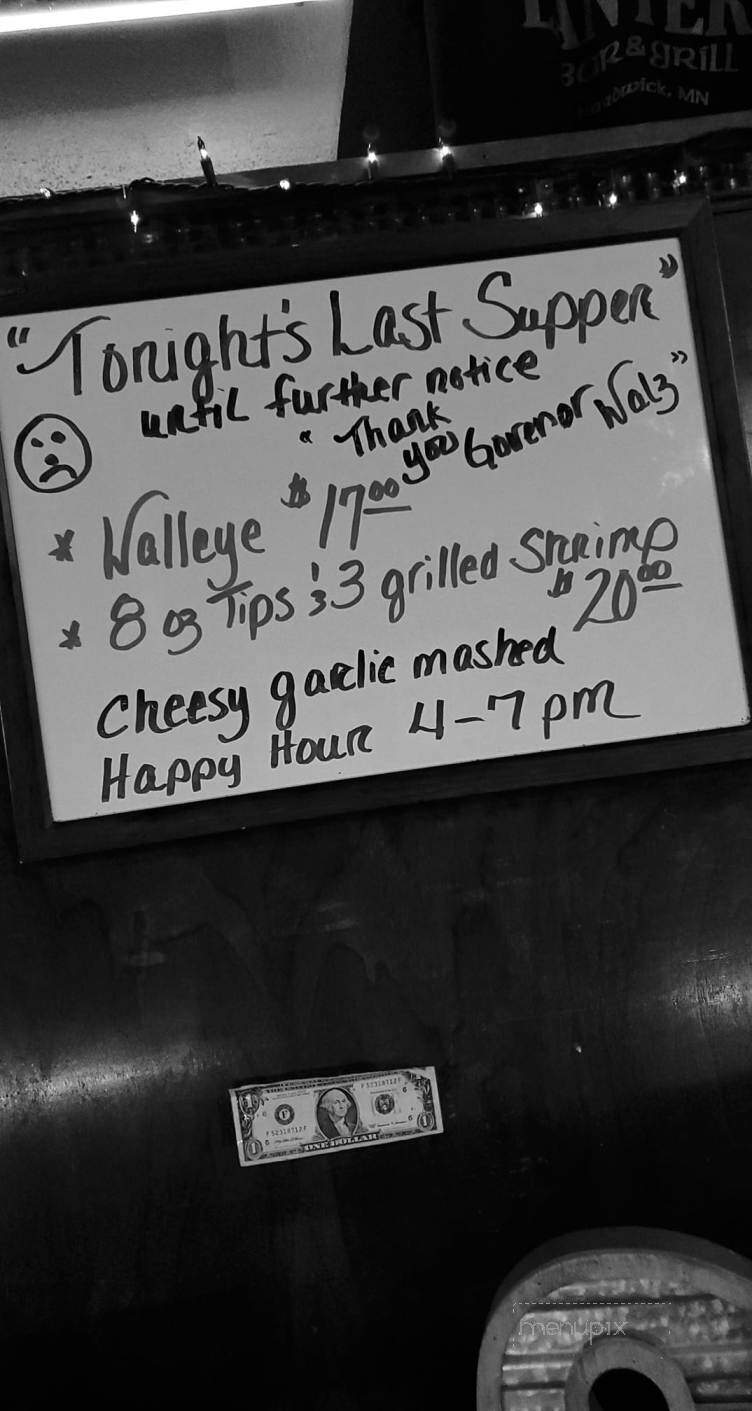 BAR & GRILL
MN
"Tonight's Last Supper"
until further notice
" Thank you Govenor Walz"
* Walleye $17.00
* 8 oz Tips & 3 grilled Shrimp
$20.00
Cheesy garlic mashed
Happy Hour 4-7 pm
F 52318712F
F 52318712F
ONE DOLLAR
menupix